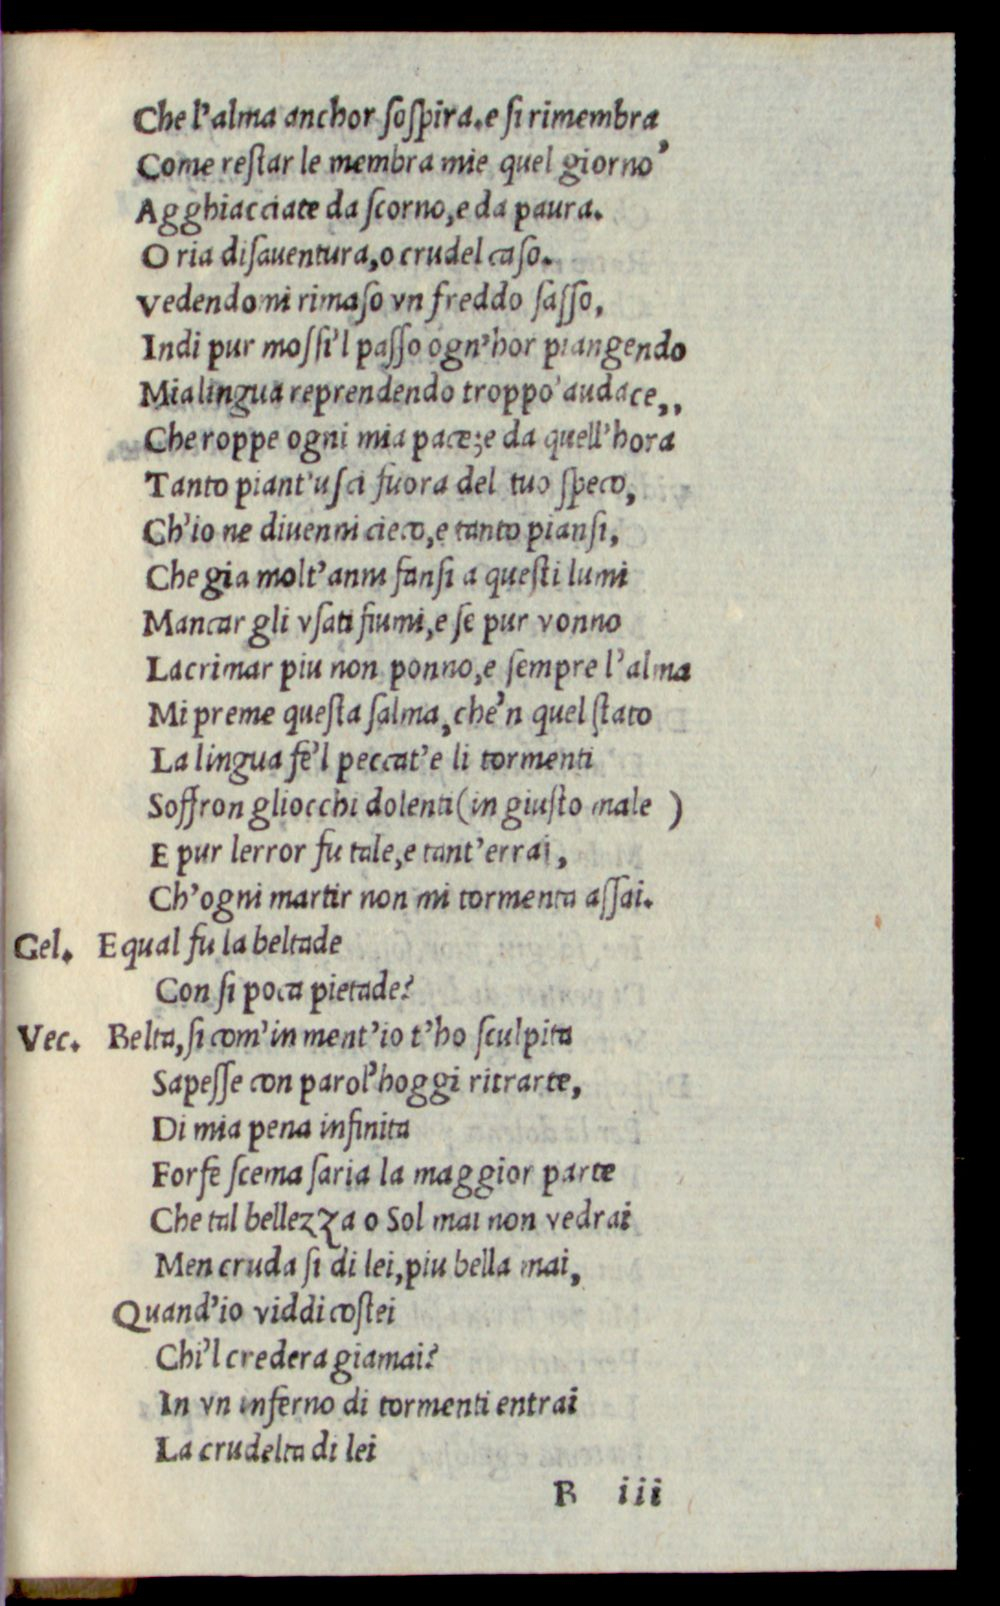 Che l'alma anchor soſpira.e ſi rimembra,
Come reſtar le membra mie quel giorno
Agghiacciate da ſcorno,e da paura.
O ria diſauentura,o crudel caſo.
Vedendomi rimaſo vn freddo ſaſſo,
Indi pur moſſi'l paſſo ogn'hor piangendo
Mia lingua reprendendo troppo audace,,
Che roppe ogni mia pace;e da quell'hora
Tanto piant'uſci fuora del tuo ſpeco,
Ch'io ne diuenni cieco,e tanto pianſi,
Che gia molt'anni fanſi a queſti lumi
Mancar gli vſati fiumi,e ſe pur vonno
Lacrimar piu non ponno,e ſempre l'alma
Mi preme queſta ſalma,che'n quel ſtato
La lingua fe'l peccat'e li tormenti
Soffron gliocchi dolenti(in giuſto male )
E pur lerror fu tale,e tant'errai,
Ch'ogni martir non mi tormenta aſſai.
Gel. E qual fu la beltade
Con ſi poca pietade?
Vec. Belta,ſi com'in ment'io t'ho ſculpita
Sapeſſe con parol'hoggi ritrarte,
Di mia pena infinita
Forſe ſcema ſaria la maggior parte
Che tal bellezza o Sol mai non vedrai
Men cruda ſi di lei,piu bella mai,
Quand'io viddi coſtei
Chi'l credera giamai?
In vn inferno di tormenti entrai
La crudelta di lei
B iii